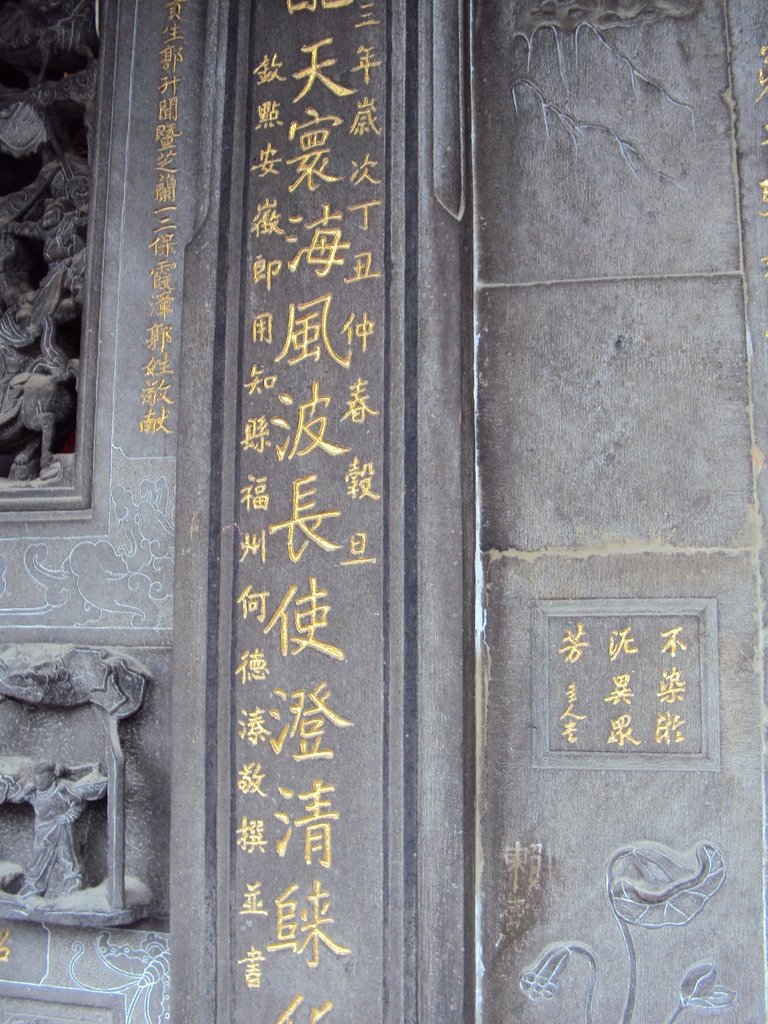 不染淤
泥異眾
芳 主人書
三年歲次丁丑仲春穀旦
天寰海風波長使澄清
欽點安徽即用知縣福州何德溱敬撰並書
貢生郭升聞暨芝蘭一二保霞漳郭姓敬献